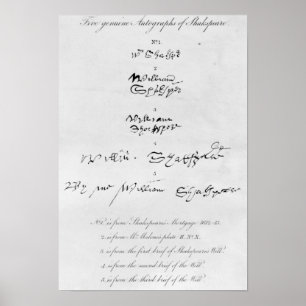 Five genuine Autographs of Shakspeare.
Nº1.
Wm Shakspe
2.
William
Shakspere
3.
William
Shakspere
4.
Willm Shakspere
5.
By me William Shakspeare
Nº1. is from Shakspeare's Mortgage 1612-13.
2. is from Mr. Malone's plate II. Nº X.
3. is from the first brief of Shakspeare's Will.
4. is from the second brief of the Will.
5. is from the third brief of the Will.